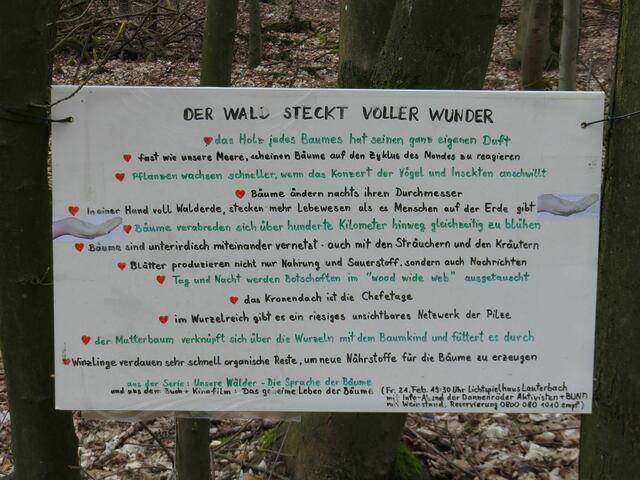 DER WALD STECKT VOLLER WUNDER
das Holz jedes Baumes hat seinen ganz eigenen Duft
fast wie unsere Meere, scheinen Bäume auf den Zyklus des Mondes zu reagieren
Pflanzen wachsen schneller, wenn das Konzert der Vögel und Insekten anschwillt
Bäume ändern nachts ihren Durchmesser
In einer Hand voll Walderde, stecken mehr Lebewesen als es Menschen auf der Erde gibt
Bäume verabreden sich über hunderte Kilometer hinweg gleichzeitig zu blühen
Bäume sind unterirdisch miteinander vernetzt - auch mit den Sträuchern und den Kräutern
Blätter produzieren nicht nur Nahrung und Sauerstoff, sondern auch Nachrichten
Tag und Nacht werden Botschaften im "wood wide web" ausgetauscht
das Kronendach ist die Chefetage
im Wurzelreich gibt es ein riesiges unsichtbares Netzwerk der Pilze
der Mutterbaum verknüpft sich über die Wurzeln mit dem Baumkind und füttert es durch
Winzlinge verdauen sehr schnell organische Reste, um neue Nährstoffe für die Bäume zu erzeugen
aus der Serie: Unsere Wälder - Die Sprache der Bäume
und aus dem Buch + Kinofilm: Das geheime Leben der Bäume
(Fr. 24. Feb. 19:30 Uhr Lichtspielhaus Lauterbach
mit Info-Abend der Dannenröder Aktivisten + BUND
mit Weinstand, Reservierung 0800 080 1010 empf.)